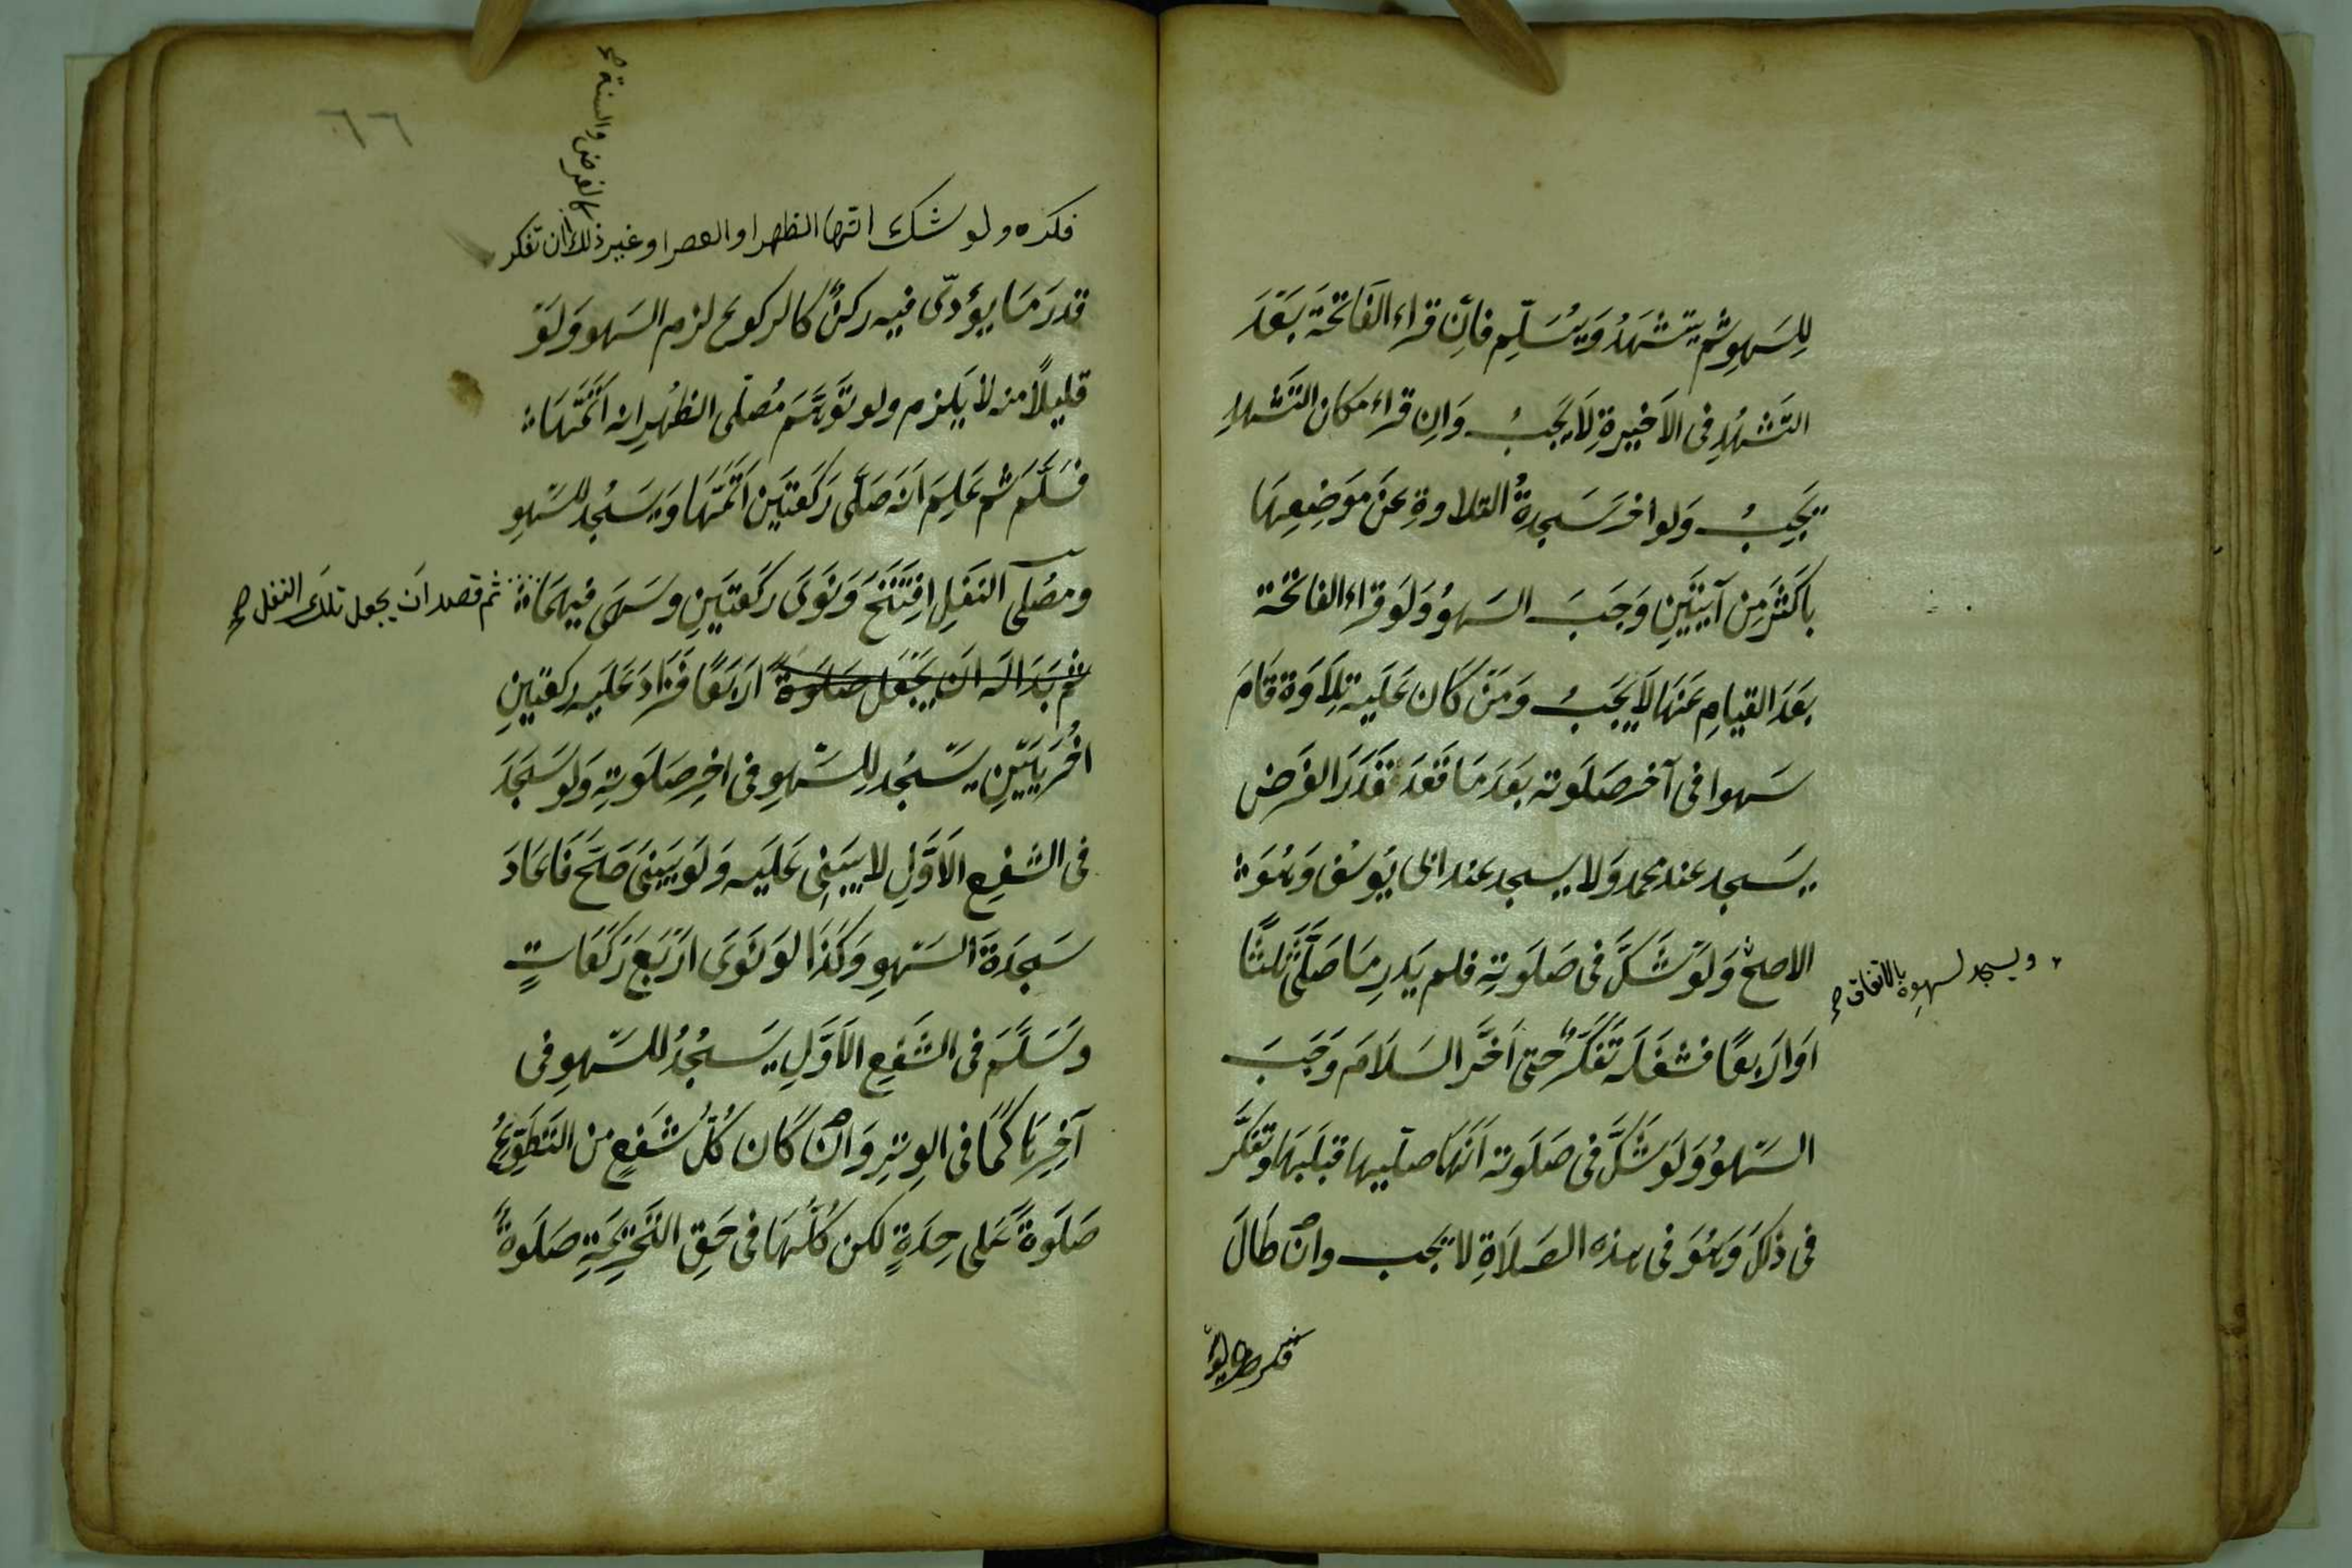 لِلسَهوِ ثم يتشهَدُ وَيُسَلِّم فاِنْ قراء الفَاتحَة بَعْدَ
التَشهُدِ فى الاَخيرةِ لَا يَجبُ وَاِن قراء مكان التَشهُدِ
يَجِبُ وَلو اخرَ سَجدةُ التلاوةِ عَنْ مَوَضِعِهَا
باكثَر مِن آيتَيَنِ وَجَبَ السَهوُ وَلَو قراء الفاتحة
بَعَدَ القيامِ عَنهَا لَا يَجَبُ وَمَنْ كَان عَليَه تِلَاوَة قَامَ
سَهوا فى آخر صَلَوته بَعَدَ مَا قعَدَ قَدَرَ الفَرَض
يسَجد عند محمد وَلا يسجد عند ابى يَوسُف وَهُوَ
الاصحْ وَلَوَ شَكَّ فى صَلَوتهِ فلم يَدرِ مَا صَلَّى ثَلثًا
ويسجد لسهوه بالاتفاق صح
اَوَ ارَبعًا فشغَلَه تَفَكّرُ حتى اَخَّر السلَامَ وَجَبَ
السَهوُ وَلَوَ شَكَّ فى صَلَوته اَنهَا صلّيها قبَلَهَا وتفكَّر
فى ذلكَ وَهُوَ فى هذه الصَلَاةِ لا يَجب وانْ طَالَ
فكره ولو
فكره ولو شك انها الظهر او العصر او غير ذلك ان تفكر
كالفرض والسنة صح
قدرَ مَا يؤدّى فيه ركنٌ كالركوع لزم السَهو وَلَوَ
قليلًا منه لَا يَلزم ولو تَوَهَّمَ مُصلّى الظُهرِ انه اَتَمَّهَا
فسَلَّمَ ثم عَلِمَ اَنه صَلَّى رَكَعتيَن اَتَمَّهَا وَيسَجُد للسَهوِ
ومصُلى النفَلِ اِفتَتَحَ وَنَوَى رَكَعتيَنِ وسَهَى فيهمَا
ثم قصد اَن يجعل تلك النفل صح
ثم بَدَا لَه اَن يَجَعَل صَلَوةً ارَبَعًا فزَادَ عَليَه ركعتينِ
اخُرَييَنِ يسَجُد لِلسَهوِ فى اخِرِ صَلَوتهِ وَلَو سَجَدَ
فى الشَفعِ الاَوَّلِ لا يَبَنِى عَليَه وَلَوَ بَنىَ صَحَّ فَاَعَادَ
سَجدَةَ السَهوِ وَكَذَا لوَ نَوَى ارَبَعَ رَكَعَاتٍ
وسَلَّمَ فى الشَفعِ الاَوَّلِ يسَجُدُ للسَهوِ فى
آخِرِهَا كَمَا فى الوِترِ وَانْ كَان كُلُّ شَفعٍ من التَطَوّعِ
صَلَوةً عَلى حِدَةٍ لكن كُلُّهَا فى حَقِ التَحَرِيمَةِ صَلَوةٌ